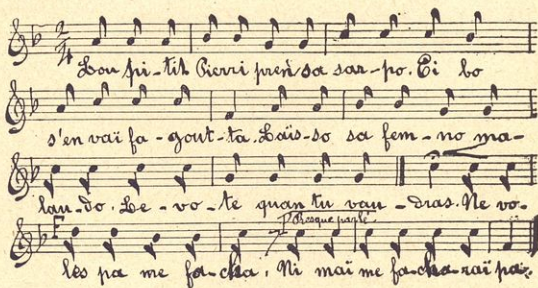 Lou pi-tit Pierri pren sa sar-po. Ei bo
s'en vaï fa-gout-ta. Laïs-so sa fem-no ma-
lau-do. Le-vo-te quan tu vau-dras. Ne vo-
Presque parlé
lès pa me fa-cha, Ni maï me fa-cha-raï pa.